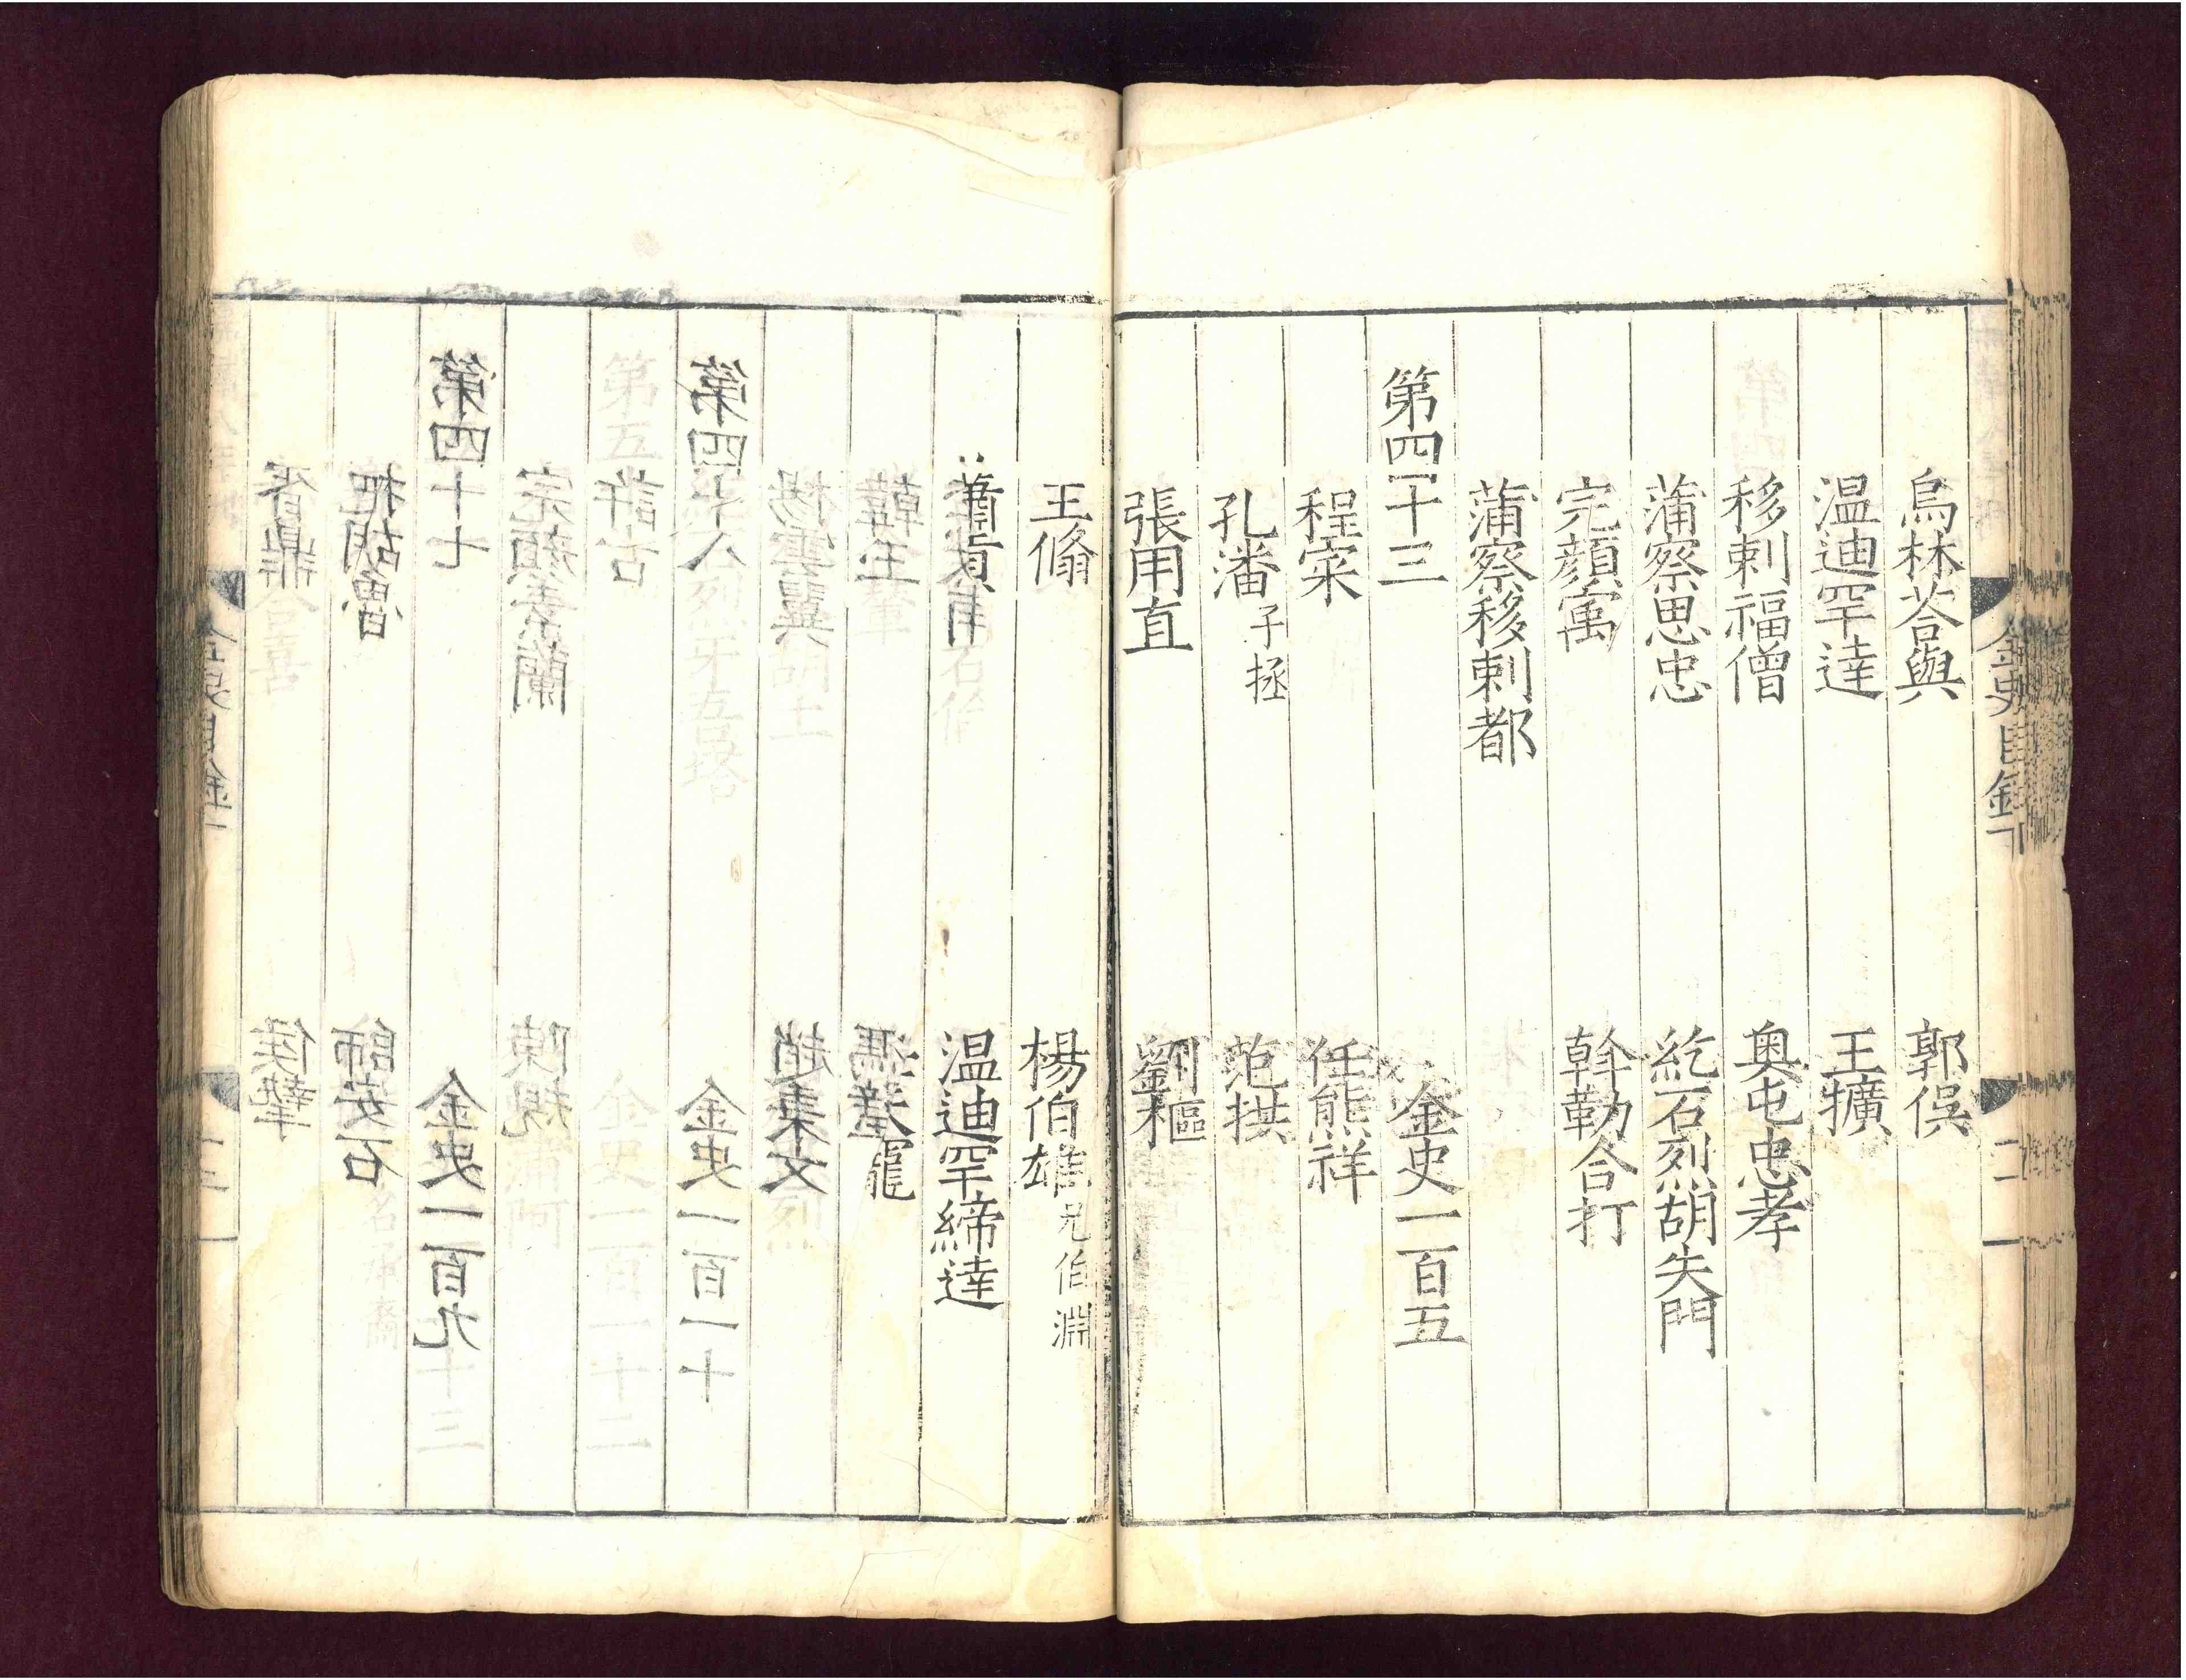 金史目錄下
烏林荅與　郭俁
温迪罕達　王擴
移剌福僧　奥屯忠孝
蒲察思忠　紇石烈胡失門
完顔寓　斡勒合打
蒲察移剌都
第四十三　金史一百五
程寀　任熊祥
孔潘子拯　范拱
張用直　劉樞
王翛　楊伯雄兄伯淵
蕭貢　温迪罕締達
韓玉　馮璧
楊雲翼　趙秉文
第四十八　金史一百一十
許古
完顔素蘭　陳規
第四十七　金史一百九
把胡魯　師安石
胥鼎　侯摯